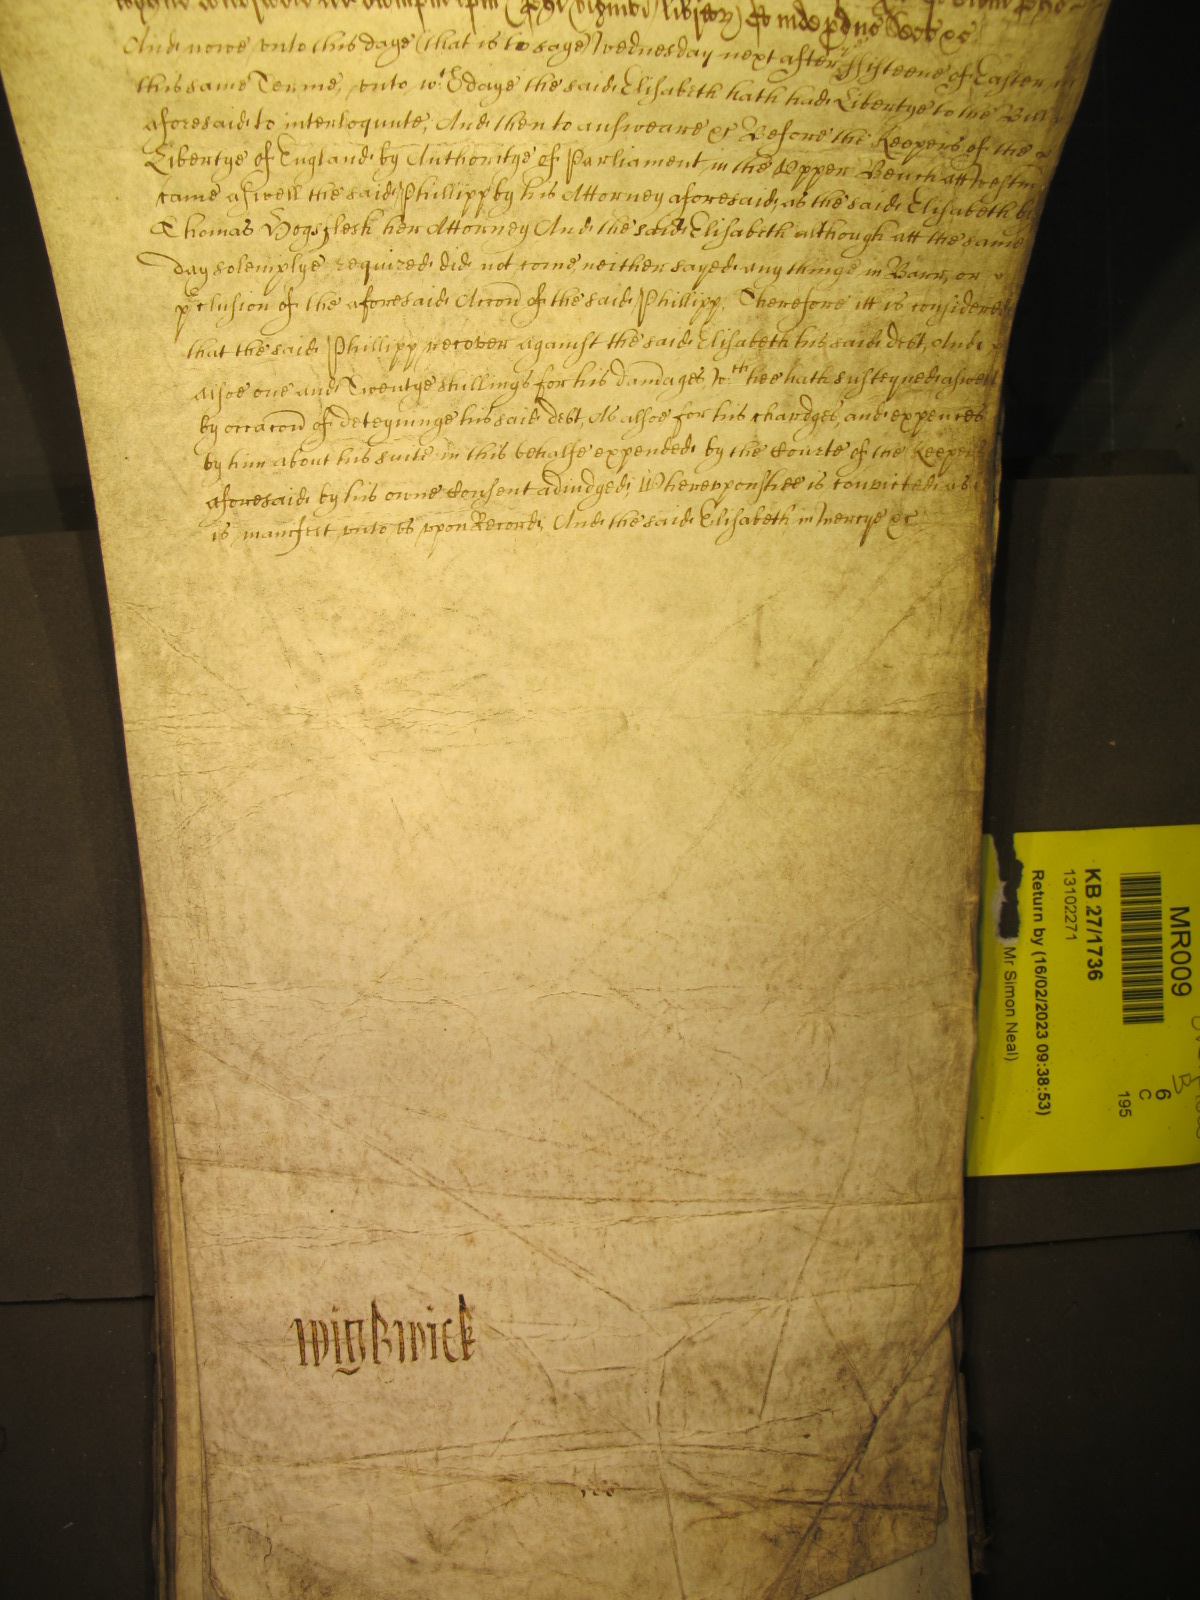 And nowe vnto this daye (that is to saye) Wednesday next after fifteene of Easter in
this same Terme, vnto wch daye the said Elisabeth hath had Libertye to the Bill
aforesaid to interloqute, And then to answeare &c Before the Keepers of the
Libertye of England by Authoritye of Parliament in the Vpper Bench att Westm
came aswell the said Phillipp by his Attorney aforesaid, as the said Elisabeth by
Thomas her Attorney And the said Elisabeth although att the same
day solemplye required did not come, neither sayed any thinge in Barr, or
pclusion of the aforesaid Accon of the said Phillipp, Therefore itt is considered
that the said Phillipp recover against the said Elisabeth his said debt, And
alsoe one and Twentye shillings for his damages wth hee hath susteyned aswell
by occacon of deteyninge his said debt, As alsoe for his chardges, and expences
by him about his suite in this behalfe expended by the Courte of the Keepers
aforesaid by his owne Consent adiudged; Wherevpon shee is convicted as
is manifest vnto vs vpon Record; And the said Elisabeth in Mercye &c
MR009
6
C
195
KB 27/1736
13102271
Return by (16/02/2023 09:38:53)
Mr Simon Neal)
wightwick